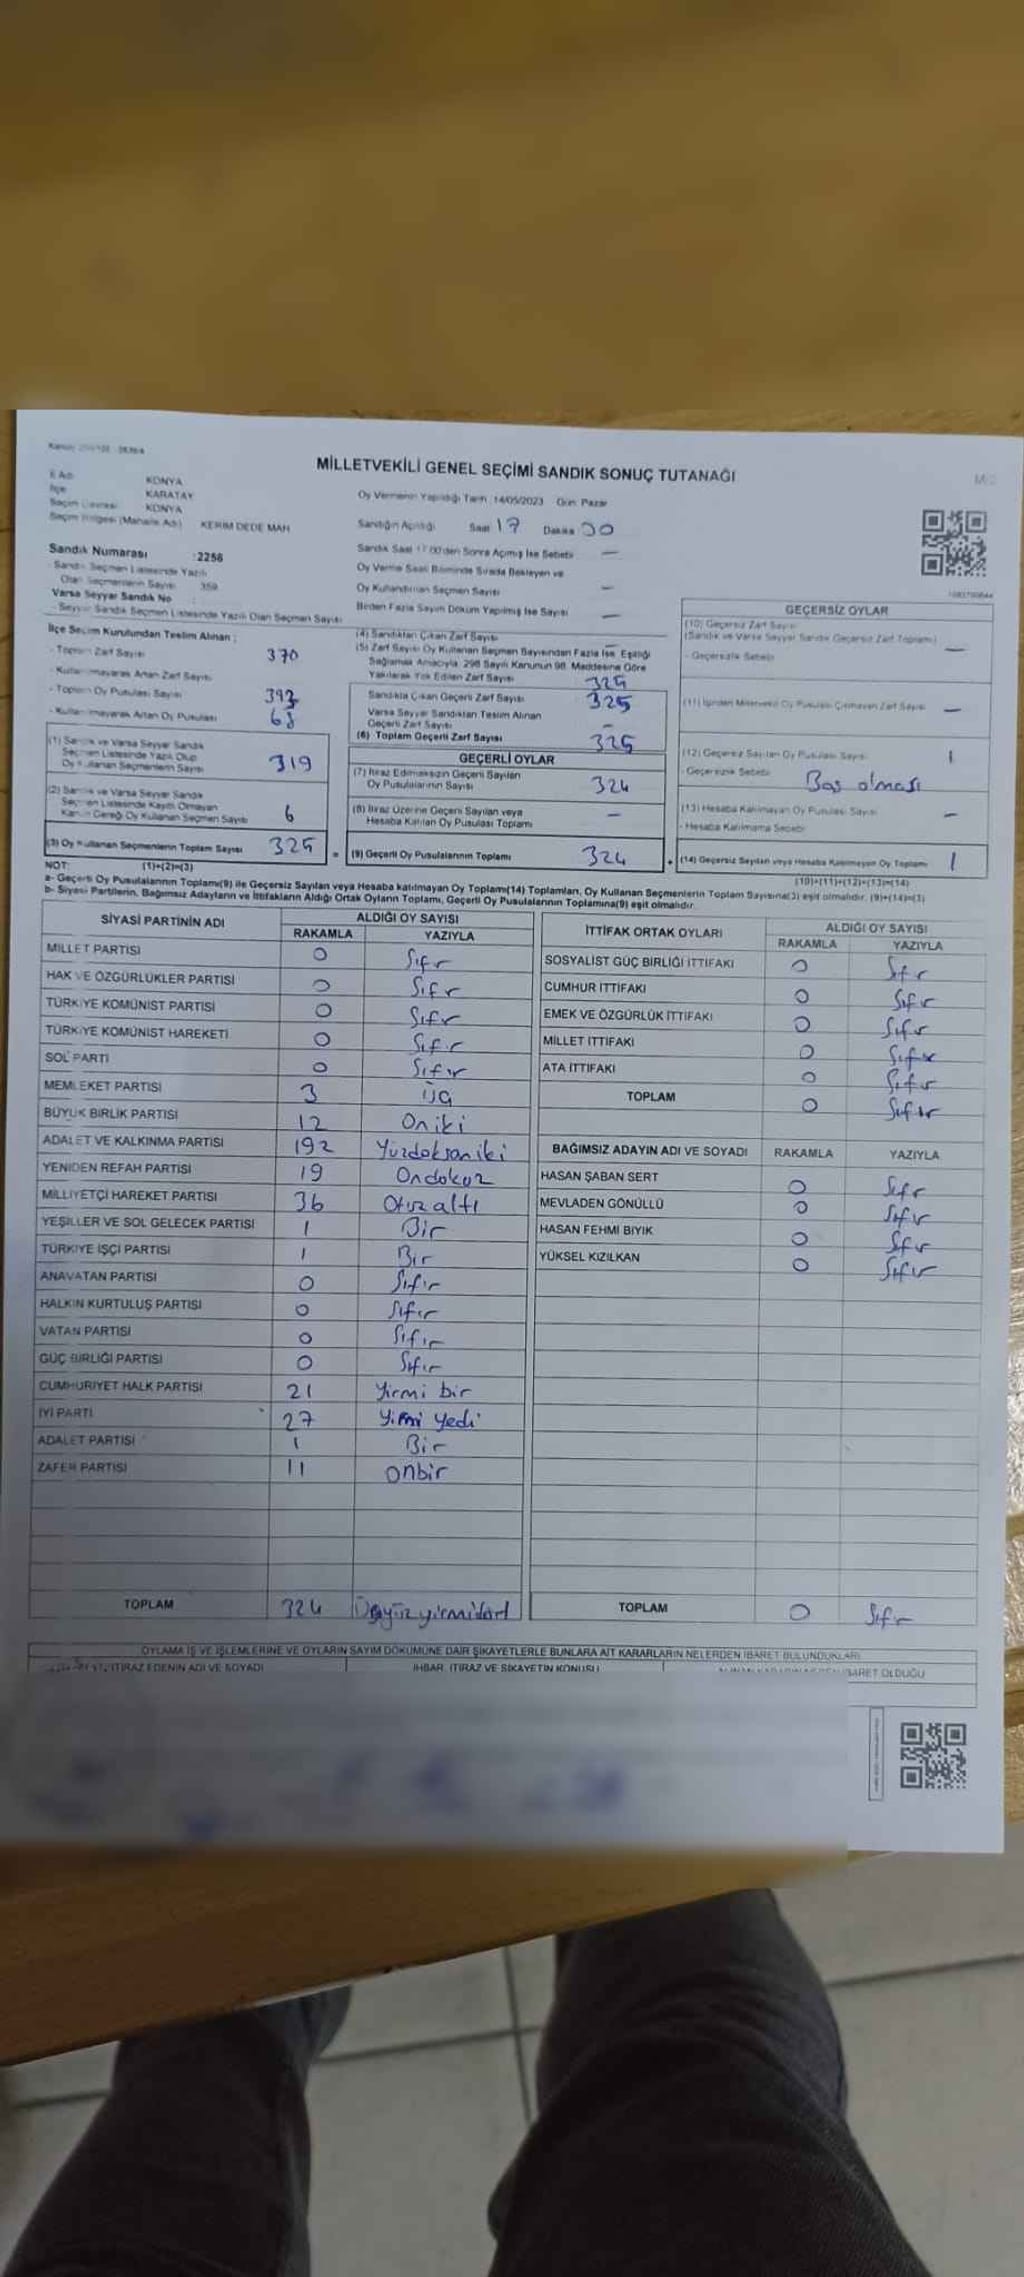 MİLLETVEKİLİ GENEL SEÇİMİ SANDIK SONUÇ TUTANAĞI
İl Adı KONYA
İlçe KARATAY
Seçim Çevresi KONYA
Seçim Bölgesi (Mahalle Adı) KERİM DEDE MAH
Oy Vermenin Yapıldığı Tarih 14/05/2023 Gün: Pazar
Sandığın Açıldığı Saat 17 Dakika 30
Sandık Numarası :2256
- Sandık Seçmen Listesinde Yazılı
Olan Seçmenlerin Sayısı 359
Varsa Seyyar Sandık No
- Seyyar Sandık Seçmen Listesinde Yazılı Olan Seçmen Sayısı
Sandık Saat 17:00'den Sonra Açılmış İse Sebebi —
Oy Verme Saati Bitiminde Sırada Bekleyen ve
Oy Kullandırılan Seçmen Sayısı —
Birden Fazla Sayım Döküm Yapılmış İse Sayısı —
İlçe Seçim Kurulundan Teslim Alınan :
- Toplam Zarf Sayısı 370
- Kullanılmayarak Artan Zarf Sayısı
- Toplam Oy Pusulası Sayısı 393
- Kullanılmayarak Artan Oy Pusulası 68
(1) Sandık ve Varsa Seyyar Sandık
Seçmen Listesinde Yazılı Olup
Oy Kullanan Seçmenlerin Sayısı 319
(2) Sandık ve Varsa Seyyar Sandık
Seçmen Listesinde Kayıtlı Olmayan
Kanun Gereği Oy Kullanan Seçmen Sayısı 6
(3) Oy Kullanan Seçmenlerin Toplam Sayısı 325
(1)+(2)=(3)
(4) Sandıktan Çıkan Zarf Sayısı
(5) Zarf Sayısı Oy Kullanan Seçmen Sayısından Fazla İse, Eşitliği
Sağlamak Amacıyla, 298 Sayılı Kanunun 98. Maddesine Göre
Yakılarak Yok Edilen Zarf Sayısı 325
Sandıkta Çıkan Geçerli Zarf Sayısı 325
Varsa Seyyar Sandıktan Teslim Alınan
Geçerli Zarf Sayısı —
(6) Toplam Geçerli Zarf Sayısı 325
GEÇERLİ OYLAR
(7) İtiraz Edilmeksizin Geçerli Sayılan
Oy Pusulalarının Sayısı 324
(8) İtiraz Üzerine Geçerli Sayılan veya
Hesaba Katılan Oy Pusulası Toplamı —
= (9) Geçerli Oy Pusulalarının Toplamı 324
GEÇERSİZ OYLAR
(10) Geçersiz Zarf Sayısı
(Sandık ve Varsa Seyyar Sandık Geçersiz Zarf Toplamı) —
- Geçersizlik Sebebi
(11) İçinden Milletvekili Oy Pusulası Çıkmayan Zarf Sayısı —
(12) Geçersiz Sayılan Oy Pusulası Sayısı 1
- Geçersizlik Sebebi Boş olması
(13) Hesaba Katılmayan Oy Pusulası Sayısı —
- Hesaba Katılmama Sebebi
+ (14) Geçersiz Sayılan veya Hesaba Katılmayan Oy Toplamı 1
(10)+(11)+(12)+(13)=(14)
NOT:
a- Geçerli Oy Pusulalarının Toplamı(9) ile Geçersiz Sayılan veya Hesaba katılmayan Oy Toplamı(14) Toplamları, Oy Kullanan Seçmenlerin Toplam Sayısına(3) eşit olmalıdır. (9)+(14)=(3)
b- Siyasi Partilerin, Bağımsız Adayların ve İttifakların Aldığı Ortak Oyların Toplamı, Geçerli Oy Pusulalarının Toplamına(9) eşit olmalıdır.
SİYASİ PARTİNİN ADI ALDIĞI OY SAYISI
RAKAMLA YAZIYLA
MİLLET PARTİSİ 0 Sıfır
HAK VE ÖZGÜRLÜKLER PARTİSİ 0 Sıfır
TÜRKİYE KOMÜNİST PARTİSİ 0 Sıfır
TÜRKİYE KOMÜNİST HAREKETİ 0 Sıfır
SOL PARTİ 0 Sıfır
MEMLEKET PARTİSİ 3 Üç
BÜYÜK BİRLİK PARTİSİ 12 Oniki
ADALET VE KALKINMA PARTİSİ 192 Yüzdoksaniki
YENİDEN REFAH PARTİSİ 19 Ondokuz
MİLLİYETÇİ HAREKET PARTİSİ 36 Otuzaltı
YEŞİLLER VE SOL GELECEK PARTİSİ 1 Bir
TÜRKİYE İŞÇİ PARTİSİ 1 Bir
ANAVATAN PARTİSİ 0 Sıfır
HALKIN KURTULUŞ PARTİSİ 0 Sıfır
VATAN PARTİSİ 0 Sıfır
GÜÇ BİRLİĞİ PARTİSİ 0 Sıfır
CUMHURİYET HALK PARTİSİ 21 Yirmi bir
İYİ PARTİ 27 Yirmi yedi
ADALET PARTİSİ 1 Bir
ZAFER PARTİSİ 11 onbir
TOPLAM 324 Üçyüzyirmidört
İTTİFAK ORTAK OYLARI ALDIĞI OY SAYISI
RAKAMLA YAZIYLA
SOSYALİST GÜÇ BİRLİĞİ İTTİFAKI 0 Sıfır
CUMHUR İTTİFAKI 0 Sıfır
EMEK VE ÖZGÜRLÜK İTTİFAKI 0 Sıfır
MİLLET İTTİFAKI 0 Sıfır
ATA İTTİFAKI 0 Sıfır
TOPLAM 0 Sıfır
BAĞIMSIZ ADAYIN ADI VE SOYADI RAKAMLA YAZIYLA
HASAN ŞABAN SERT 0 Sıfır
MEVLADEN GÖNÜLLÜ 0 Sıfır
HASAN FEHMİ BIYIK 0 Sıfır
YÜKSEL KIZILKAN 0 Sıfır
TOPLAM 0 Sıfır
OYLAMA İŞ VE İŞLEMLERİNE VE OYLARIN SAYIM DÖKÜMÜNE DAİR ŞİKAYETLERLE BUNLARA AİT KARARLARIN NELERDEN İBARET BULUNDUKLARI
İTİRAZ EDENİN ADI VE SOYADI İHBAR, İTİRAZ VE ŞİKAYETİN KONUSU İBARET OLDUĞU